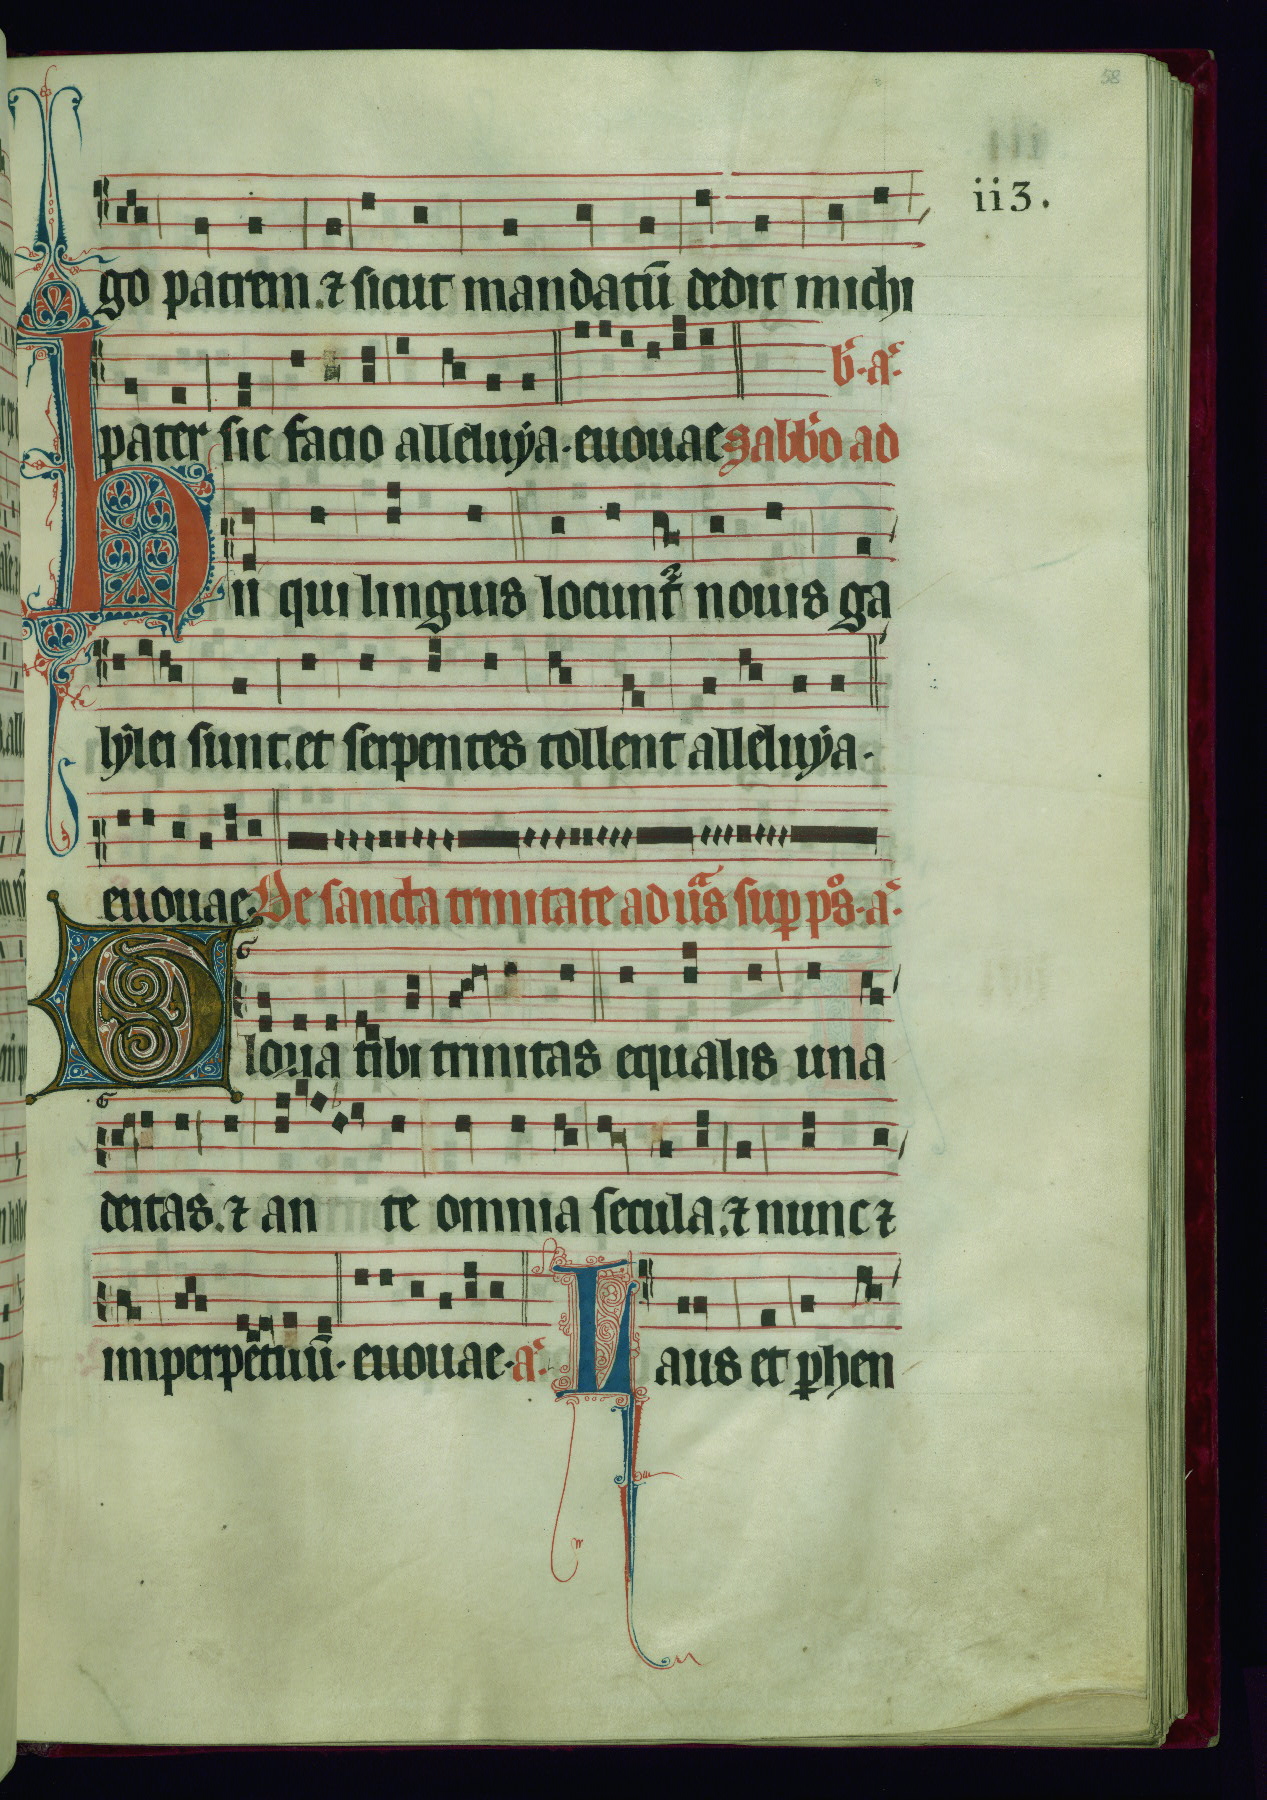 58
ii3.
go patrem. ⁊ sicut mandatū dedit michi
b̄. a͛.
pater sic facio alleluya. euouae Sabb̄o ad
Hii qui linguis locunt᷑ nouis ga
lylei sunt. et serpentes tollent alleluya.
euouae. De sancta trinitate ad
Gloria tibi trinitas equalis una
deitas. ⁊ an te omnia secula. ⁊ nunc ⁊
imperpētuū. euouae. a͛. Laus et ꝑhen